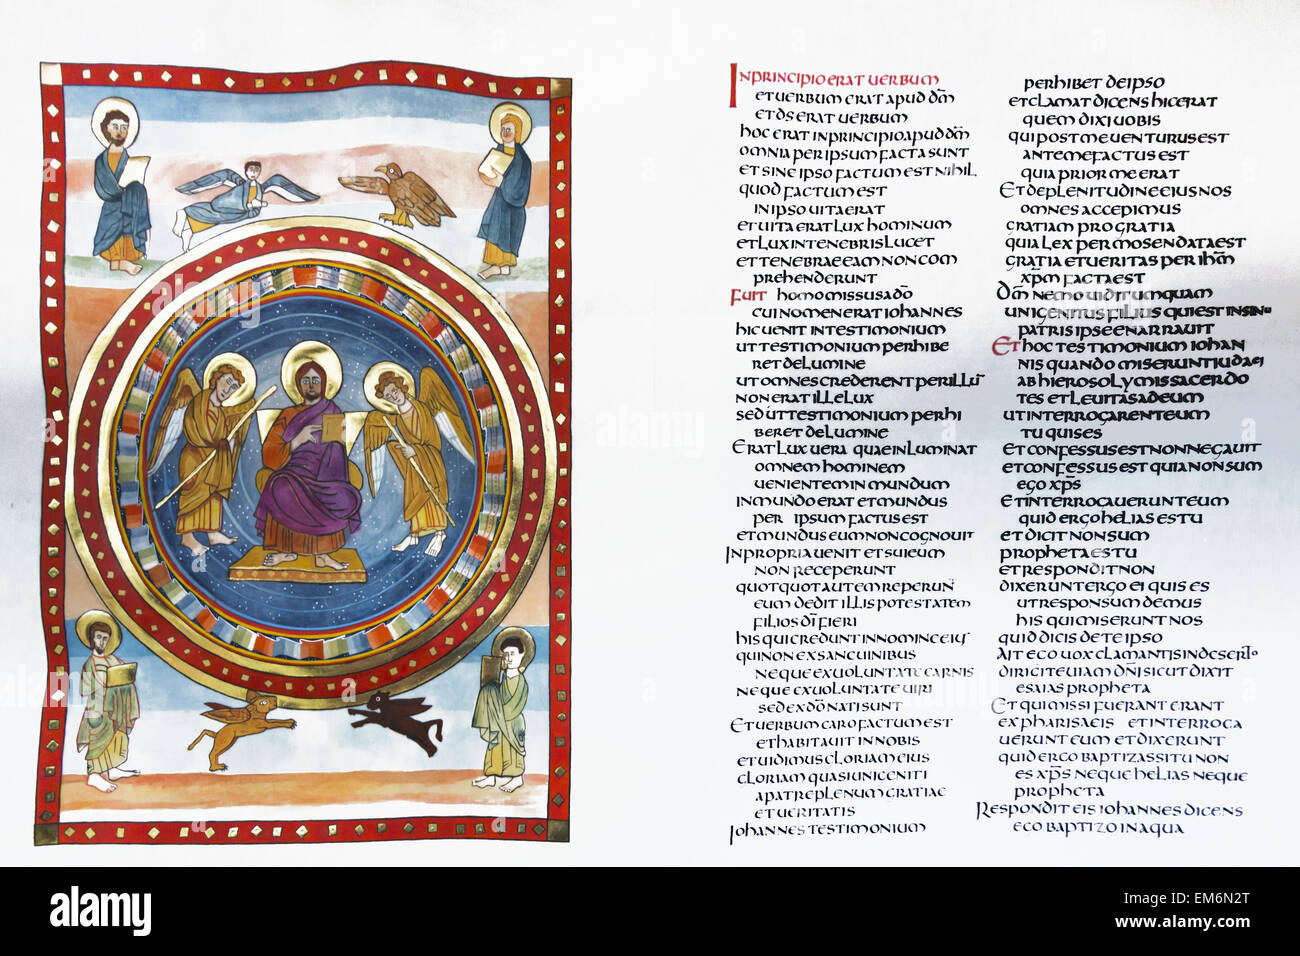 INPRINCIPIO ERAT UERBUM
ET UERBUM ERAT APUD DM̄
ET DS̄ ERAT UERBUM
HOC ERAT IN PRINCIPIO APUD DM̄
OMNIA PER IPSUM FACTA SUNT
ET SINE IPSO FACTUM EST NIHIL
QUOD FACTUM EST
IN IPSO UITA ERAT
ET UITA ERAT LUX HOMINUM
ET LUX IN TENEBRIS LUCET
ET TENEBRAE EAM NON COM
PREHENDERUNT
FUIT HOMO MISSUS A DŌ
CUI NOMEN ERAT IOHANNES
HIC UENIT IN TESTIMONIUM
UT TESTIMONIUM PERHIBE
RET DE LUMINE
UT OMNES CREDERENT PER ILLŪ
NON ERAT ILLE LUX
SED UT TESTIMONIUM PERHI
BERET DE LUMINE
ERAT LUX UERA QUAE INLUMINAT
OMNEM HOMINEM
UENIENTEM IN MUNDUM
IN MUNDO ERAT ET MUNDUS
PER IPSUM FACTUS EST
ET MUNDUS EUM NON COGNOUIT
IN PROPRIA UENIT ET SUI EUM
NON RECEPERUNT
QUOTQUOT AUTEM REPERUN̄
EUM DEDIT ILLIS POTESTATEM
FILIOS DĪ FIERI
HIS QUI CREDUNT IN NOMINE EIUS
QUI NON EX SANCUINIBUS
NEQUE EX UOLUNTATE CARNIS
NEQUE EX UOLUNTATE UIRI
SED EX DŌ NATI SUNT
ET UERBUM CARO FACTUM EST
ET HABITAUIT IN NOBIS
ET UIDIMUS CLORIAM EIUS
CLORIAM QUASI UNICENITI
A PATRE PLENUM GRATIAE
ET UERITATIS
IOHANNES TESTIMONIUM
PERHIBET DE IPSO
ET CLAMAT DICENS HIC ERAT
QUEM DIXI UOBIS
QUI POST ME UENTURUS EST
ANTE ME FACTUS EST
QUIA PRIOR ME ERAT
ET DE PLENITUDINE EIUS NOS
OMNES ACCEPIMUS
GRATIAM PRO GRATIA
QUIA LEX PER MOSEN DATA EST
GRATIA ET UERITAS PER IHM̄
XPM̄ FACTA EST
DM̄ NEMO UIDIT UMQUAM
UNIGENITUS FILIUS QUI EST IN SINU
PATRIS IPSE ENARRAUIT
ET HOC TESTIMONIUM IOHAN
NIS QUANDO MISERUNT IUDAEI
AB HIEROSOLYMIS SACERDO
TES ET LEUITAS AD EUM
UT INTERROGARENT EUM
TU QUIS ES
ET CONFESSUS EST NON NEGAUIT
ET CONFESSUS EST QUIA NON SUM
EGO XPS̄
ET INTERROGAUERUNT EUM
QUID ERGO HELIAS ES TU
ET DICIT NON SUM
PROPHETA ES TU
ET RESPONDIT NON
DIXERUNT ERGO EI QUIS ES
UT RESPONSUM DEMUS
HIS QUI MISERUNT NOS
QUID DICIS DE TE IPSO
AIT ECO UOX CLAMANTIS IN DESERTO
DIRICITE UIAM DN̄I SICUT DIXIT
ESAIAS PROPHETA
ET QUI MISSI FUERANT ERANT
EX PHARISAEIS ET INTERROCA
UERUNT EUM ET DIXERUNT
QUID ERCO BAPTIZAS SI TU NON
ES XPS̄ NEQUE HELIAS NEQUE
PROPHETA
RESPONDIT EIS IOHANNES DICENS
ECO BAPTIZO IN AQUA
alamy
Image ID: EM6N2T
www.alamy.com